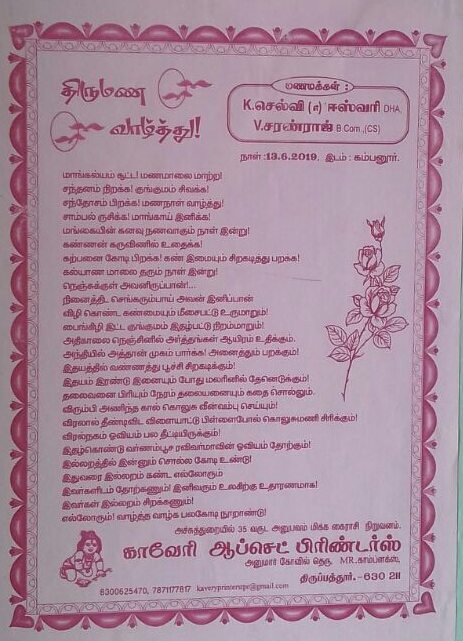 திருமண
வாழ்த்து!
மணமக்கள் :
K.செல்வி (எ) ஈஸ்வரி DHA,
V.சரண்ராஜ் B.Com.,(CS)
நாள் :13.6.2019, இடம் : கம்பனூர்.
மாங்கல்யம் சூட்ட! மணமாலை மாற்ற!
சந்தனம் நிறக்க! குங்குமம் சிவக்க!
சந்தோசம் பிறக்க! மணநாள் வாழ்த்து!
சாம்பல் ருசிக்க! மாங்காய் இனிக்க!
மங்கையின் கனவு நனவாகும் நாள் இன்று!
கண்ணன் கருவினில் உதைக்க!
கற்பனை கோடி பிறக்க! கண் இமையும் சிறகடித்து பறக்க!
கல்யாண மாலை தரும் நாள் இன்று!
நெஞ்சுக்குள் அவனிருப்பான்!...
நினைத்திட செங்கரும்பாய் அவன் இனிப்பான்
விழி கொண்ட கண்மையும் மீசைபட்டு உருமாறும்!
பைங்கிழி இட்ட குங்குமம் இதழ்பட்டு நிறம்மாறும்!
அதிகாலை நெஞ்சினில் அர்த்தங்கள் ஆயிரம் உதிக்கும்.
அந்தியில் அத்தான் முகம் பார்க்க! அனைத்தும் பறக்கும்!
இதயத்தில் வண்ணத்து பூச்சி சிறகடிக்கும்!
இதயம் இரண்டு இணையும் போது மலரினில் தேனெடுக்கும்!
தலைவனை பிரியும் நேரம் தலையணையும் கதை சொல்லும்.
விரும்பி அணிந்த கால் கொலுசு வீண்வம்பு செய்யும்!
விரலால் தீண்டிவிட விளையாட்டு பிள்ளைபோல் கொலுசுமணி சிரிக்கும்!
விரல்நகம் ஓவியம் பல தீட்டியிருக்கும்!
இதழ்கொண்டு வர்ணம்பூச ரவிவர்மாவின் ஓவியம் தோற்கும்!
இல்லறத்தில் இன்னும் சொல்ல கோடி உண்டு!
இதுவரை இல்லறம் கண்ட எல்லோரும்
இவர்களிடம் தோற்கணும்! இனிவரும் உலகிற்கு உதாரணமாக!
இவர்கள் இல்லறம் சிறக்கணும்!
எல்லோரும்! வாழ்த்த வாழ்க பலகோடி நூறாண்டு!
அச்சுத்துறையில் 35 வருட அனுபவம் மிக்க கைராசி நிறுவனம்.
காவேரி ஆப்செட் பிரிண்டர்ஸ்
அனுமார் கோவில் தெரு, MR.காம்ப்ளக்ஸ்,
திருப்பத்தூர்.-630 211
6300625470, 7871177817 kaveryprinterstpr@gmail.com